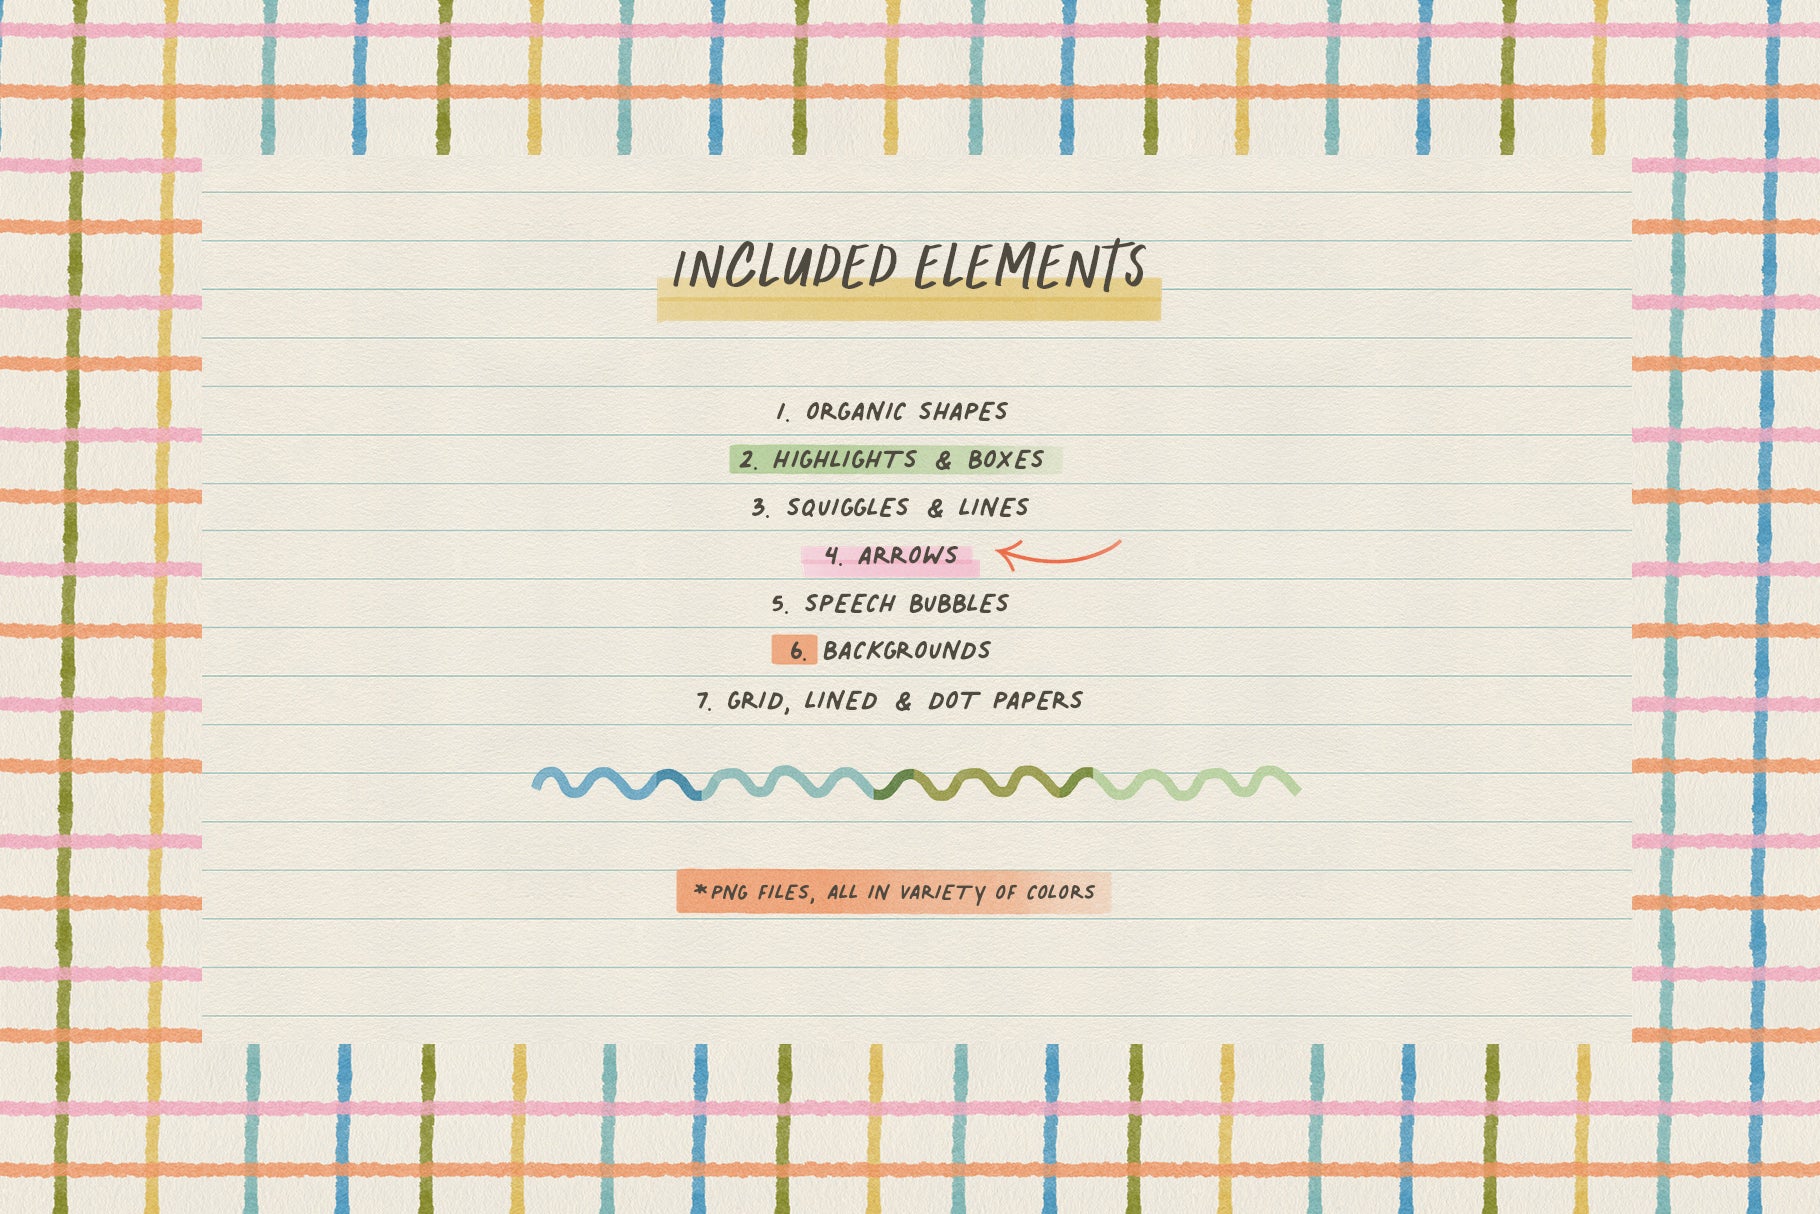 INCLUDED ELEMENTS
1. ORGANIC SHAPES
2. HIGHLIGHTS & BOXES
3. SQUIGGLES & LINES
4. ARROWS
5. SPEECH BUBBLES
6. BACKGROUNDS
7. GRID, LINED & DOT PAPERS
*PNG FILES, ALL IN VARIETY OF COLORS